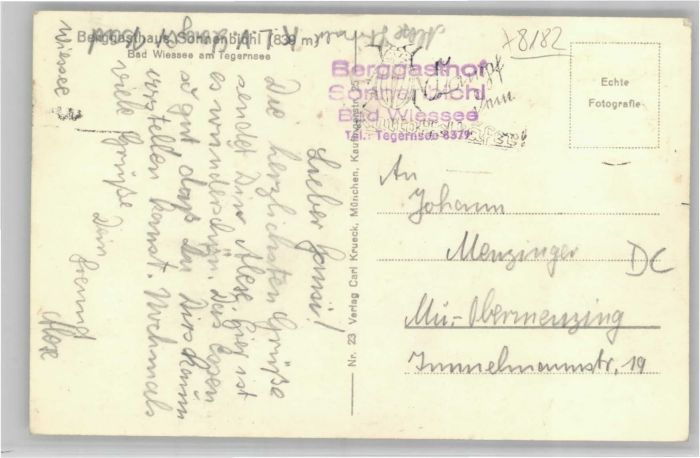 Berggasthaus Sonnenbichl (839 m)
Bad Wiessee am Tegernsee
Wiessee
Lieber Hansi!
Die herzlichsten Grüße
sendet Dir Alex. Hier ist
es wunderschön. Das Essen
so gut daß Du Dirs kaum
vorstellen kannst. Nochmals
viele Grüße Dein Freund
Alex
Nr. 23 Verlag Carl Krueck, München, Kaulbachstraße
Berggasthof
Sonnenbichl
Bad Wiessee
Tel.: Tegernsee 8379
+8/82
Echte
Fotografie
An
Johann
Menzinger
DC
Mü.-Obermenzing
Immelmannstr. 19